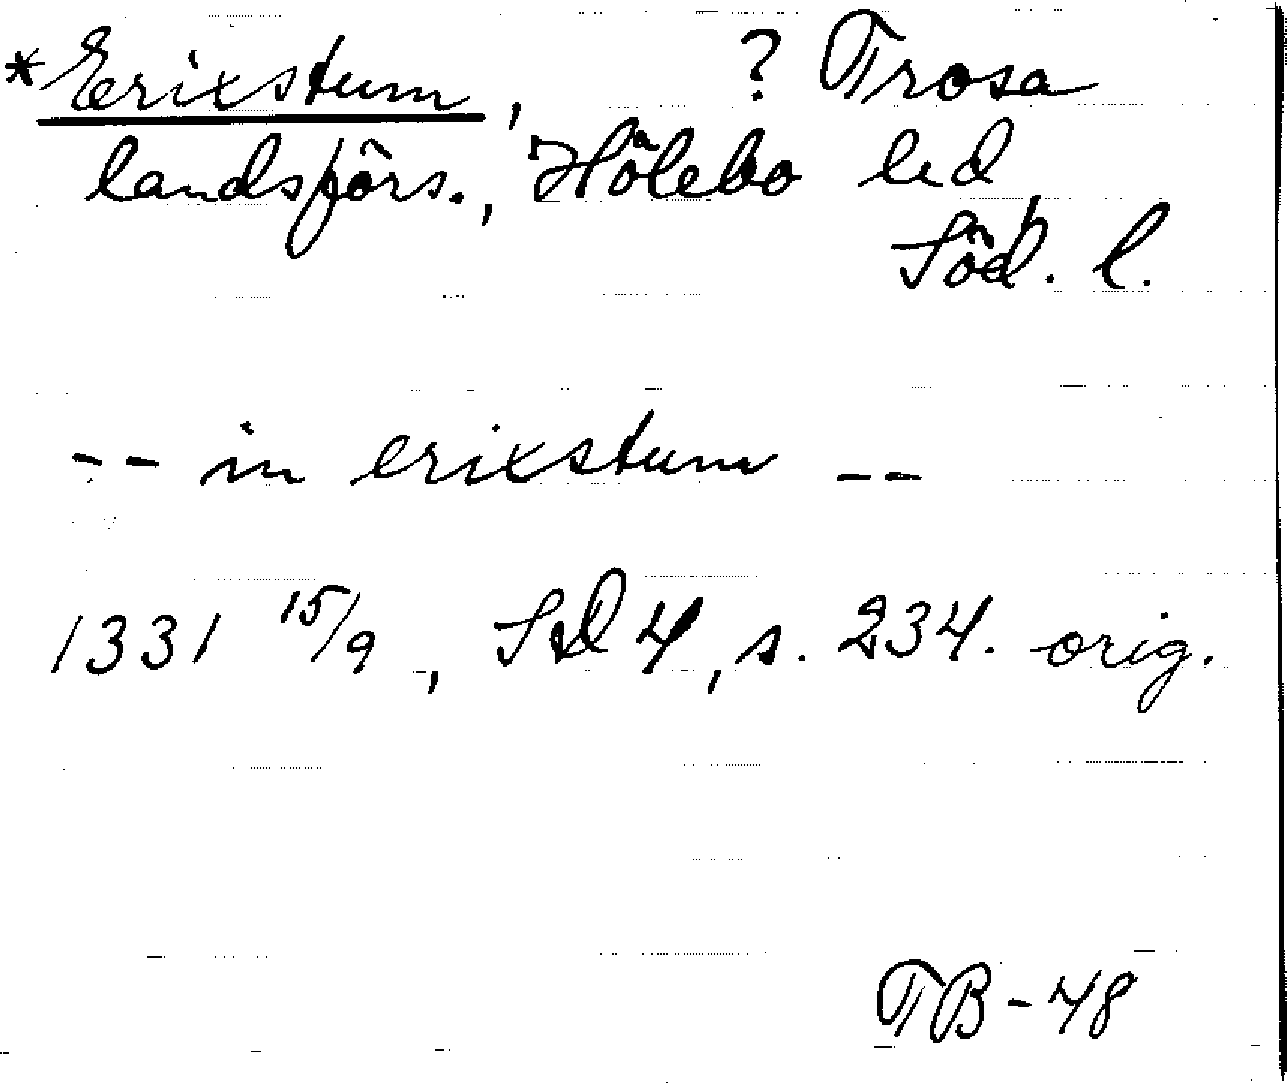 *Erixstum, ? Trosa
landsförs., Hölebo hd
Söd. l.
-- in erixstum --
1331 15/9, SD 4, s. 234. orig.
TB-48